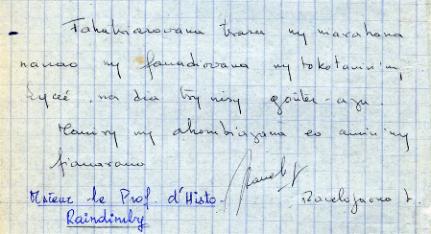 Fahatsiarovana tsara ny marahana
nanao ny fanadiovana ny tokotanin'ny
Lycée, na dia try nisy goûter-azu
Manisy ny ahombiazana eo amin'ny
fianarano
Msieur le Prof. d'Histo.
Raindimby